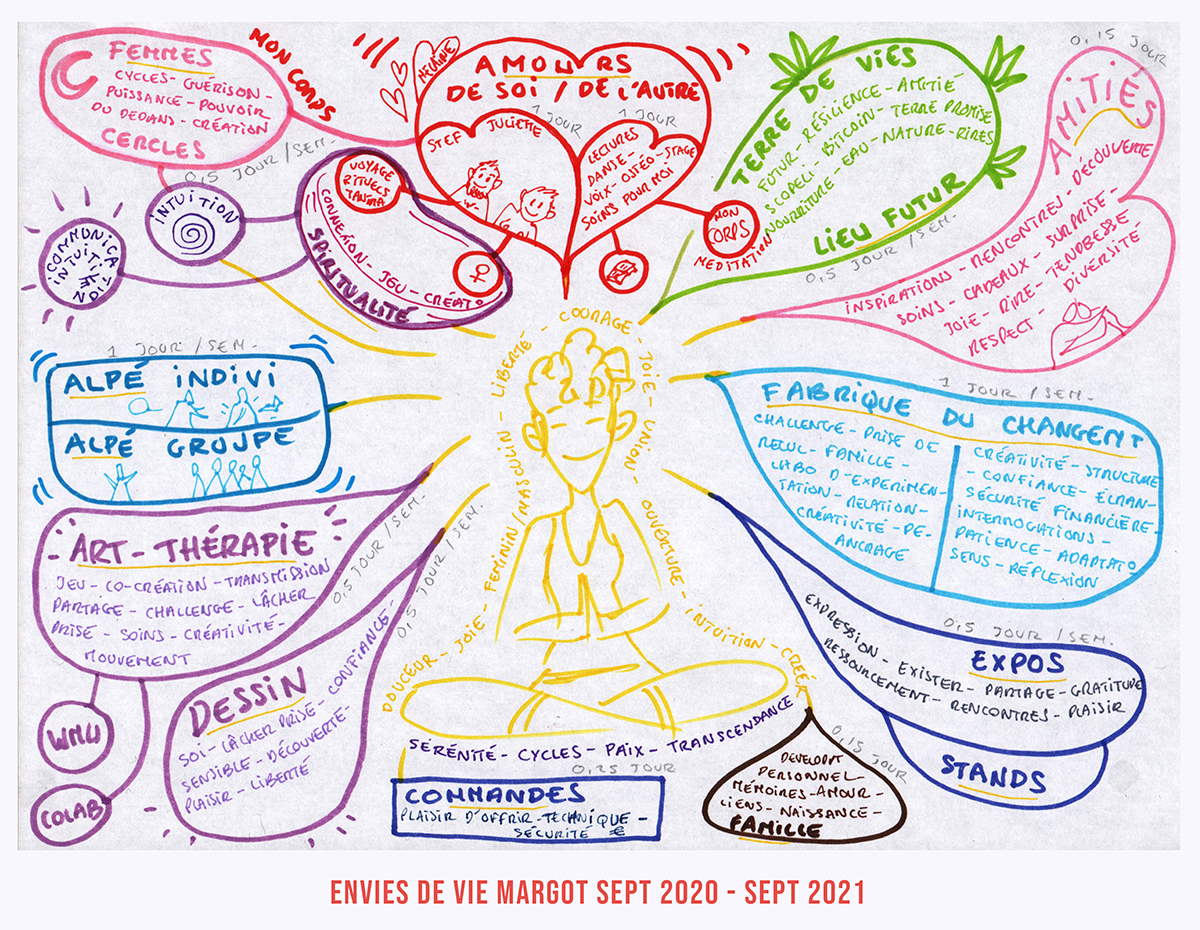 FEMMES
CYCLES - GUÉRISON -
PUISSANCE - POUVOIR
DU DEDANS - CRÉATION
CERCLES
MON CORPS
0,5 JOUR / SEM.
INTUITION
COMMUNICATION
INTUITIVE
VOYAGE
RITUELS
TANTRA
CONNEXION - JEU - CRÉATO
SPIRITUALITÉ
AMOURS
DE SOI / DE L'AUTRE
1 JOUR
1 JOUR
STEF
JULIETTE
LECTURES
DANSE -
VOIX - OSTÉO - STAGE
SOINS POUR MOI
MON
CORPS
MEDITATION
TERRE DE VIES
FUTUR - RÉSILIENCE - AMITIÉ
SCOPELI - BITCOIN - TERRE PROMISE
NOURRITURE - EAU - NATURE - RIRES
LIEU FUTUR
0,5 JOUR / SEM.
0,15 JOUR
AMITIÉS
INSPIRATIONS - RENCONTRES - DÉCOUVERTE
SOINS - CADEAUX - SURPRISE -
JOIE - RIRE - TENDRESSE
RESPECT - DIVERSITÉ
1 JOUR / SEM.
ALPÉ INDIVI
ALPÉ GROUPE
1 JOUR / SEM.
FABRIQUE DU CHANGEMT
CHALLENGE - PRISE DE
RECUL - FAMILLE -
LABO D'EXPERIMEN-
TATION - RELATION -
CRÉATIVITÉ - DE -
ANCRAGE
CRÉATIVITÉ - STRUCTURE
- CONFIANCE - ÉCRAN -
SÉCURITÉ FINANCIÈRE -
INTERROGATIONS -
PATIENCE - ADAPTATO
SENS - RÉFLEXION
DOUCEUR - JOIE - FEMININ/MASCULIN - LIBERTÉ - COURAGE - JOIE - UNION - OUVERTURE - INTUITION - CRÉER
SÉRÉNITÉ - CYCLES - PAIX - TRANSCENDANCE
ART-THÉRAPIE
JEU - CO-CRÉATION - TRANSMISSION
PARTAGE - CHALLENGE - LÂCHER
PRISE - SOINS - CRÉATIVITÉ -
MOUVEMENT
0,5 JOUR / SEM.
COLAB
DESSIN
SOI - LÂCHER PRISE - CONFIANCE
SENSIBLE - DÉCOUVERTE -
PLAISIR - LIBERTÉ
0,5 JOUR / SEM.
0,5 JOUR / SEM.
EXPRESSION - EXISTER - PARTAGE - GRATITUDE
RESSOURCEMENT - RENCONTRES - PLAISIR
EXPOS
STANDS
0,25 JOUR
COMMANDES
PLAISIR D'OFFRIR - TECHNIQUE -
SÉCURITÉ €
0,15 JOUR
DEVELOPMT
PERSONNEL
MÉMOIRES - AMOUR -
LIENS - NAISSANCE -
FAMILLE
ENVIES DE VIE MARGOT SEPT 2020 - SEPT 2021